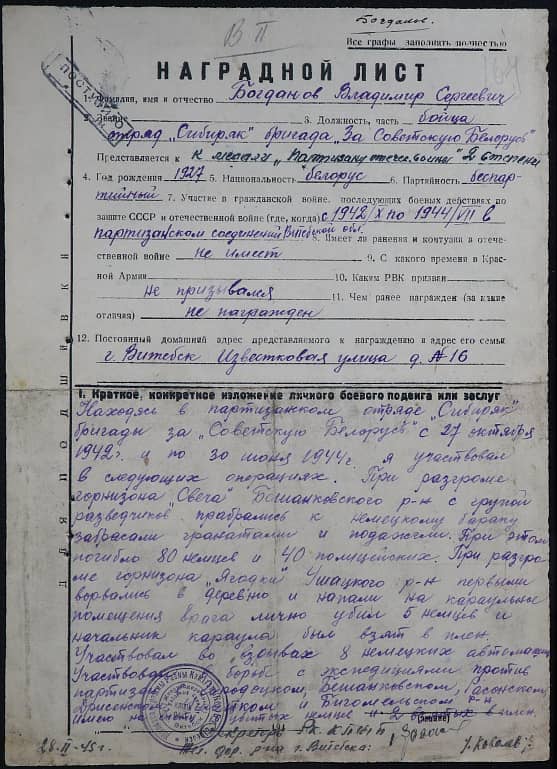 Богданов.
В П
Все графы заполнять полностью
НАГРАДНОЙ ЛИСТ
1. Фамилия, имя и отчество Богданов Владимир Сергеевич
2. Звание 3. Должность, часть бойца
отряд „Сибиряк" бригада „За Советскую Белорусь"
Представляется к к медали „Партизану отечеств. войны" 2 степени
4. Год рождения 1927 5. Национальность белорус 6. Партийность беспар-
тийный 7. Участие в гражданской войне, последующих боевых действиях по
защите СССР и отечественной войне (где, когда) с 1942/X по 1944/VII в
партизанском соединении Витебской обл. 8. Имеет ли ранения и контузии в отече-
ственной войне не имеет 9. С какого времени в Крас-
ной Армии 10. Каким РВК призван
не призывался 11. Чем ранее награжден (за какие
отличия) не награжден
12. Постоянный домашний адрес представляемого к награждению и адрес его семьи
г. Витебск Известковая улица д. № 16
I. Краткое, конкретное изложение личного боевого подвига или заслуг
Находясь в партизанском отряде „Сибиряк"
бригады за „Советскую Белорусь" с 27 октября
1942 г. и по 30 июня 1944 г. я участвовал
в следующих операциях. При разгроме
горнизона „Свеча" Бешанковского р-н с групой
разведчиков прабрались к немецкому бараку
забрасали гранатами и подажгли. При этом
погибло 80 немцев и 40 полицейских. При разгро-
ме горнизона „Ягодки" Ушацкого р-н первыми
ворвались в деревню и напали на караульные
помещения врага лично убил 5 немцев и
начальник караула был взят в плен.
Участвовал во взрывах 8 немецких автомашин
Участвовал борьб с экспедициями против
партизан Бешанковском, Расонском
Дрисенском и Бигомельском р-н
имею на убитых немцев и 2 в плен.
28.II-45 г.
г. Витебска:
У. Ковалев
Для подшивки